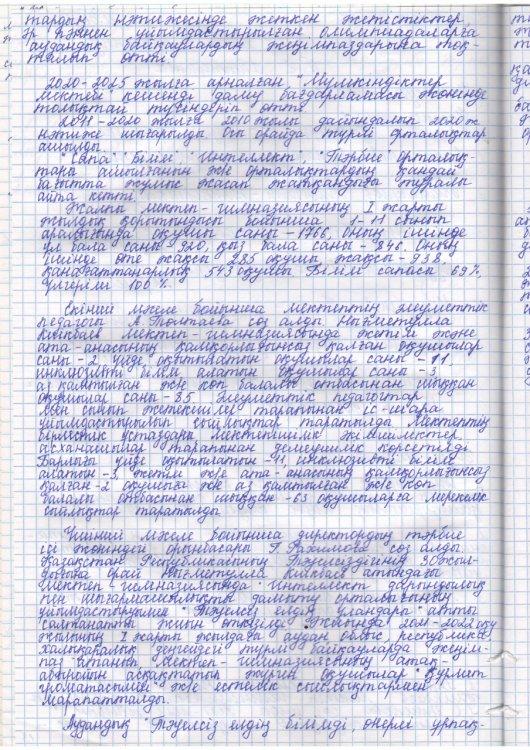 тардың нәтижесінде жеткен жетістіктер,
әр пәннен ұйымдастырылған олимпиадаларға
аудандық байқаулардың жеңімпаздарына тоқ-
талып өтті.
2020-2025 жылға арналған "Мүмкіндіктер
мектебі кешенді даму бағдарламасы жөнінде
толықтай түсіндіріп өтті.
2011-2020 жылға 2010 жылы дайындалып 2020 ж
нәтиже шығарылды. Осы орайда түрлі орталықтар
ашылды.
"Сапа" "Білім" "Интеллект", "Тәрбие орталық-
тары ашылғанын және орталықтардың қандай
бағытта жұмыс жасап жатқандығы туралы
айта кетті.
Жалпы мектеп-гимназиясының І жарты
жылдық қорытындысы бойынша 1-11 сынып
аралығында оқушы саны-1766, оның ішінде
ұл бала саны-920, қыз бала саны-846. Оның
ішінде өте жақсы 285 оқушы, жақсы-938,
қанағаттанарлық 543 оқушы Білім сапасы 69%,
үлгерімі 100%.
Екінші мәселе бойынша мектептің әлеуметтік
педагогы А. сөз алды. Нығметулла
мектеп-гимназиясында жетім және
ата-анасының қамқорлығынсыз қалған оқушылар
саны-2, үйде оқытылатын оқушылар саны-11,
инклюзивті білім алатын оқушылар саны-3,
аз қамтылған және көп балалы отбасынан шыққан
оқушылар саны-85. Әлеуметтік педагогтар
мен сынып жетекшілер тарапынан іс-шара
ұйымдастырылып сыйлықтар таратылды. Мектептің
бірлестік ұстаздары мектепішілік әкімшіліктер,
асханашылар тарапынан демеушілік көрсетілді.
Барлығы үйде оқытылатын-11 инклюзивті білім
алатын-3, жетім және ата-анасының қамқорлығынсыз
қалған-2 оқушыға және аз қамтылған және көп
балалы отбасынан шыққан-63 оқушыларға мерекелік
сыйлықтар таратылды
Үшінші мәселе бойынша директордың тәрбие
ісі жөніндегі орынбасары Г. Рахимова сөз алды.
Қазақстан Республикасының Тәуелсіздігінің 30 жыл-
дығына орай Нығметулла атындағы
мектеп-гимназиясында "Интеллект" дарындылық
пен шығармашылықты дамыту орталығының
ұйымдастыруымен "Тәуелсіз елдің ұландары" атты
салтанатты жиын өткізілді. Жиында 2021-2022 оқу
жылының І жарты жылдығы аудан облыс, республика
халықаралық деңгейдегі түрлі байқауларда жеңім-
паз атанып, мектеп-гимназиясының атақ-
абыройын асқақтатып жүрген оқушылар "Құрмет
грамотасымен" және естелік сыйлықтармен
марапатталды.
Аудандық "Тәуелсіз елдің білімді, өнерлі ұрпақ-